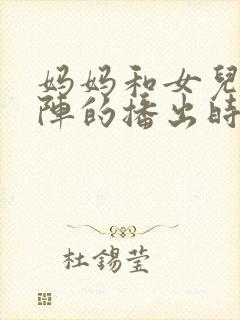 妈妈和女兒
陣的播出時
杜錫莹